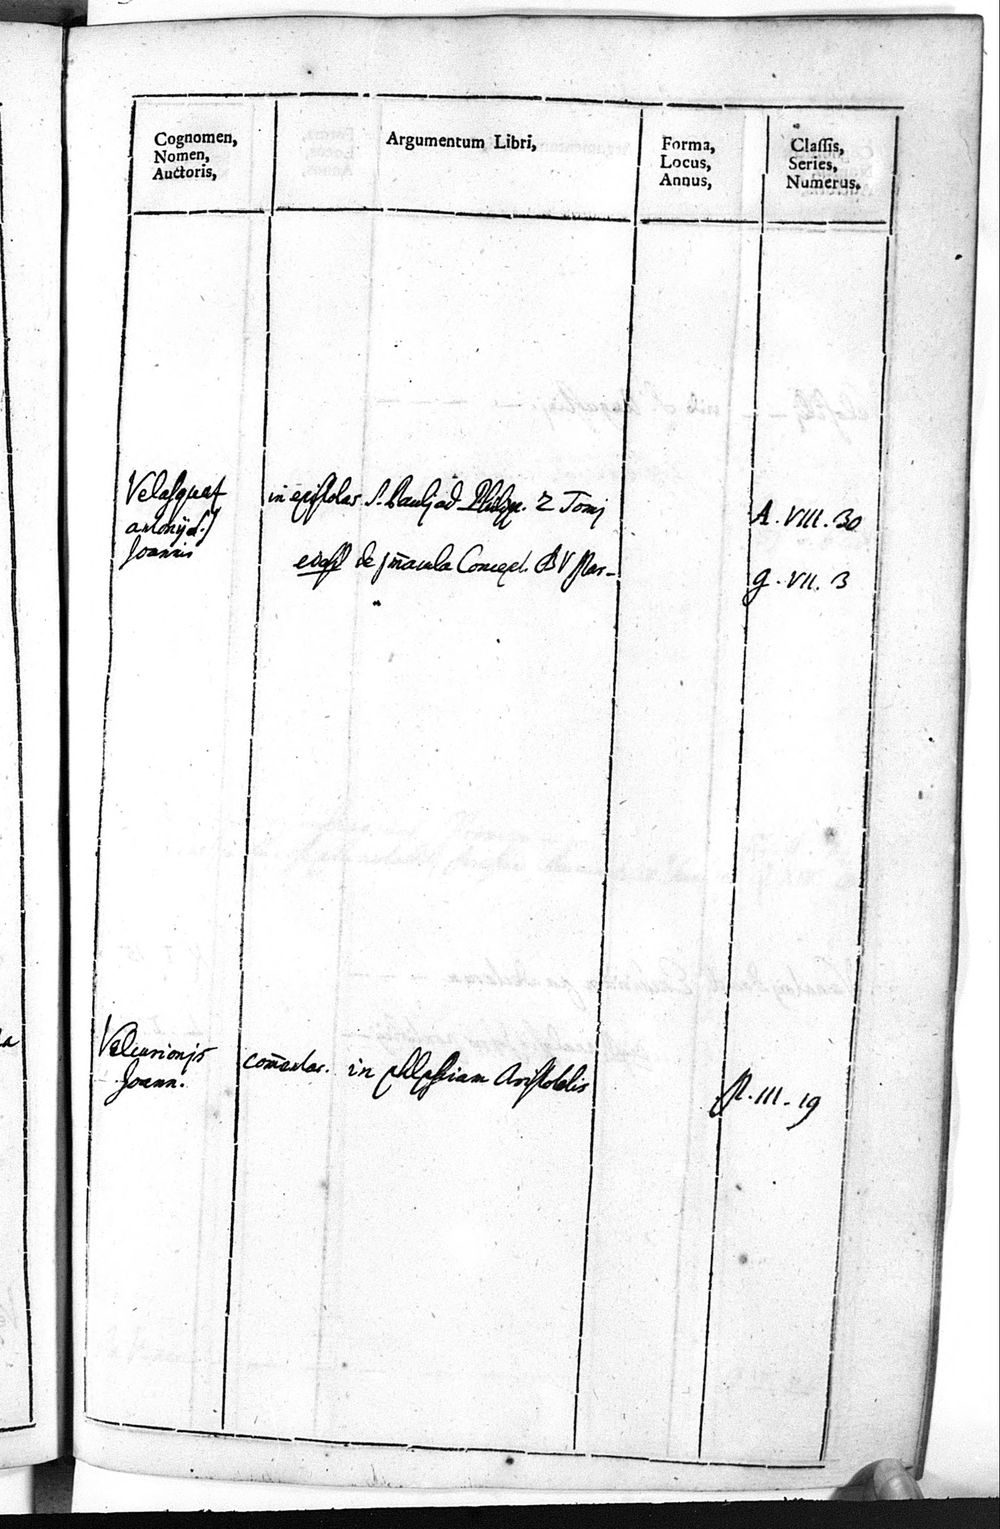 Cognomen,
Nomen,
Auctoris,
Argumentum Libri,
Forma,
Locus,
Annus,
Classis,
Series,
Numerus.
Velasquez
Joannis
in epistolas S. Pauli ad Philipp. 2 Tomi
A. VIII. 30
de immacula Concept. BV Mar-
g. VII. 3
Velcurionis
Joann.
com̄entar. in Aristotelis
III. 19